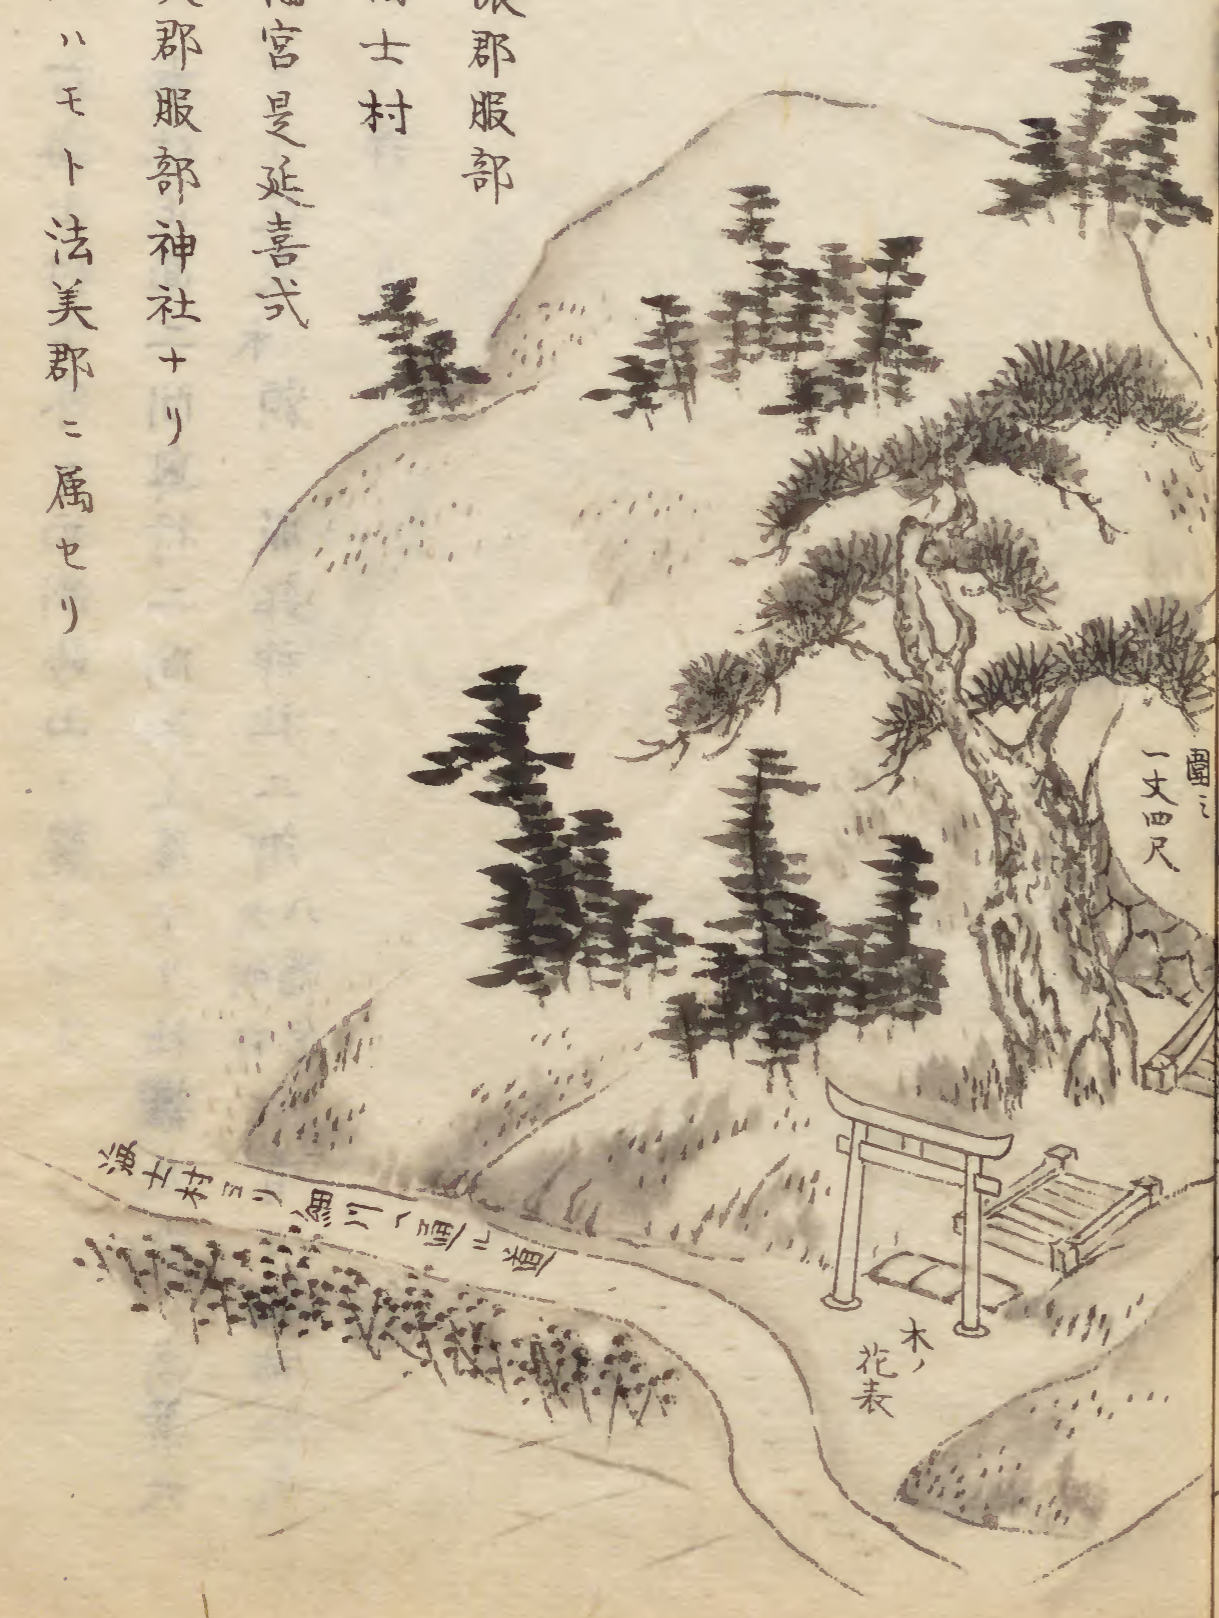 郡服部
士村
宮是延喜式
郡服部神社ナリ
ハモト法美郡ニ属セリ
圍ミ
一丈四尺
木ノ
花表
海士村ヨリ細川ヘ通ル道